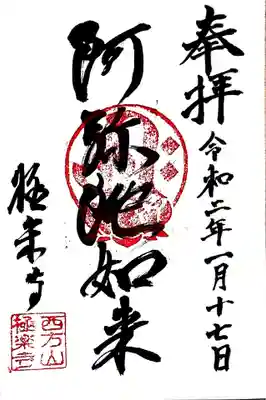 奉拝
令和二年一月十七日
阿弥陀如来
極楽寺
西方山
極楽寺